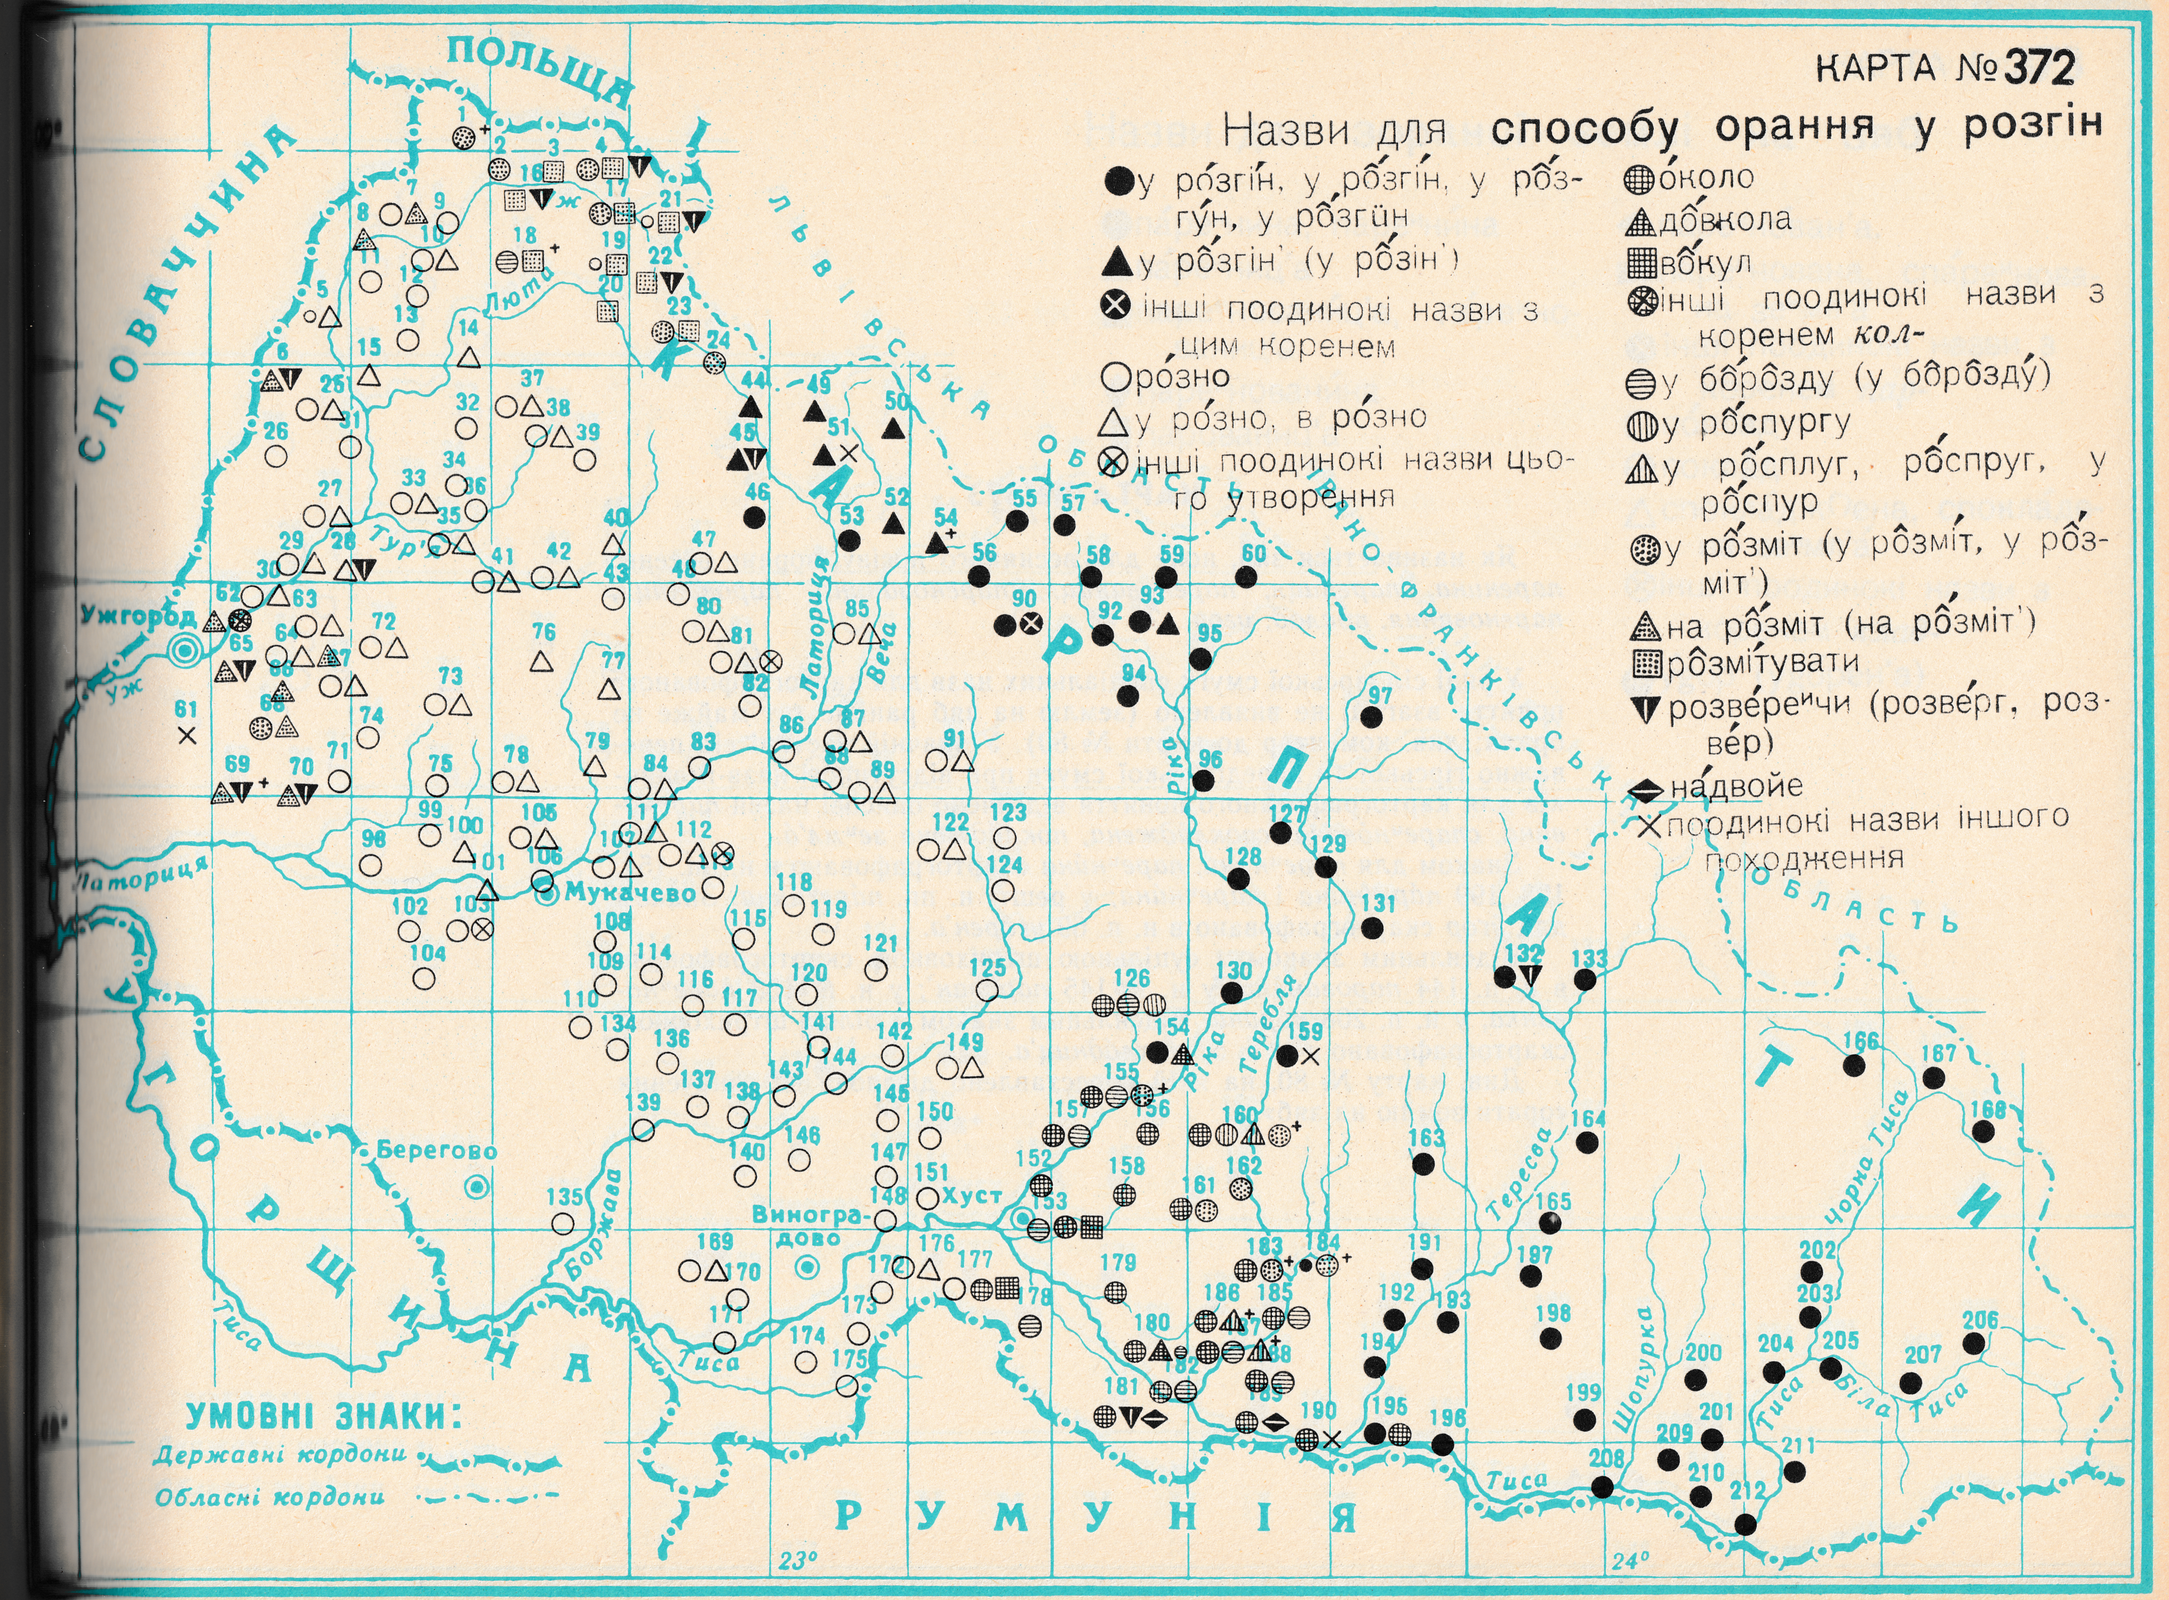 КАРТА №372
Назви для способу орання у розгін
у ро́згі́н, у рốзгі́н, у рốз-
гу́н, у рốзгӱн
у рốзгін' (у рốзін')
інші поодинокі назви з
цим коренем
ро́зно
у ро́зно, в ро́зно
інші поодинокі назви цьо-
го утворення
о́коло
дốвкола
вốкул
інші поодинокі назви з
коренем кол-
у бôрôзду (у бôрôзду́)
у рốспургу
у рốсплуг, рốспруг, у
рốспур
у рốзміт (у рôзмі́т, у рốз-
міт')
на рốзміт (на рốзміт')
рôзмі́тувати
розве́реᶦчи (розве́рг, роз-
ве́р)
на́двойе
поодинокі назви іншого
походження
ПОЛЬЩА
СЛОВАЧЧИНА
УГОРЩИНА
РУМУНІЯ
ЛЬВІВСЬКА ОБЛАСТЬ
ІВАНО-ФРАНКІВСЬКА ОБЛАСТЬ
КАРПАТИ
Ужгород
Мукачево
Берегово
Виногра-
дово
Хуст
Уж
ж
Люта
Тур'я
Латориця
Латориця
Веча
Ріка
Ріка
Теребля
Тересва
Боржава
Шопурка
Чорна Тиса
Біла Тиса
Тиса
Тиса
Тиса
Тиса
1
2 3 4
16 17
7 8 9 10
21
18 19
11 12
22
20
5 13 14 23 24
6 15
25 37 44 49 50
26 31 32 38 39 45 51
34
27 33 36 46 52
35 40 53 54 55 57
29 28 41 42 47 56 58 59 60
30 43 48
62 63 80 90 92 93
64 72 81 85
65 67 76 95
66 77 94
61 68 73 82 97
74 86 87
69 70 71 75 78 79 84 83 88 89 91 96
99 100 105 111 112 122 123 127
98 101 106 107 113 124 128 129
102 103 118 119 131
104 108 115 121 132 133
109 114 116 120 125 126 130
110 134 117 141 142
136 144 149 154 159 166 167
137 138 143 145 155
139 146 150 157 156 160 164 168
140 147 151 152 158 162 163
135 148 153 161 165
169 170 176 177 179 183 184 191 197 202
171 172 178 186 185 192 193 203
173 180 187 194 198 204 205 206
174 175 182 188 200 207
181 189 190 195 196 199 201
208 209 211
210 212
УМОВНІ ЗНАКИ:
Державні кордони
Обласні кордони
23°
24°